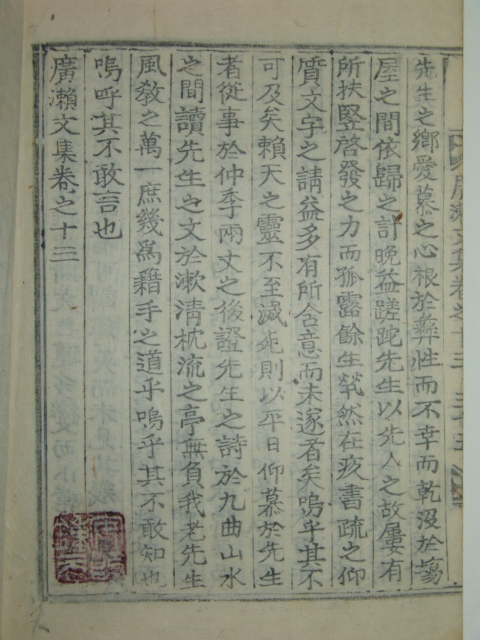 先生之鄕愛慕之心根於彝性而不幸而乾沒於場
屋之間依歸之計晩益蹉跎先生以先人之故屢有
所扶竪啓發之力而孤露餘生煢然在疚書疏之仰
質文字之請益多有所含意而未遂者矣嗚乎其不
可及矣賴天之靈不至滅死則以平日仰慕於先生
者從事於仲季兩丈之後證先生之詩於九曲山水
之間讀先生之文於漱淸枕流之亭無負我老先生
風敎之萬一庶幾爲藉手之道乎嗚乎其不敢知也
嗚呼其不敢言也
廣瀨文集卷之十三